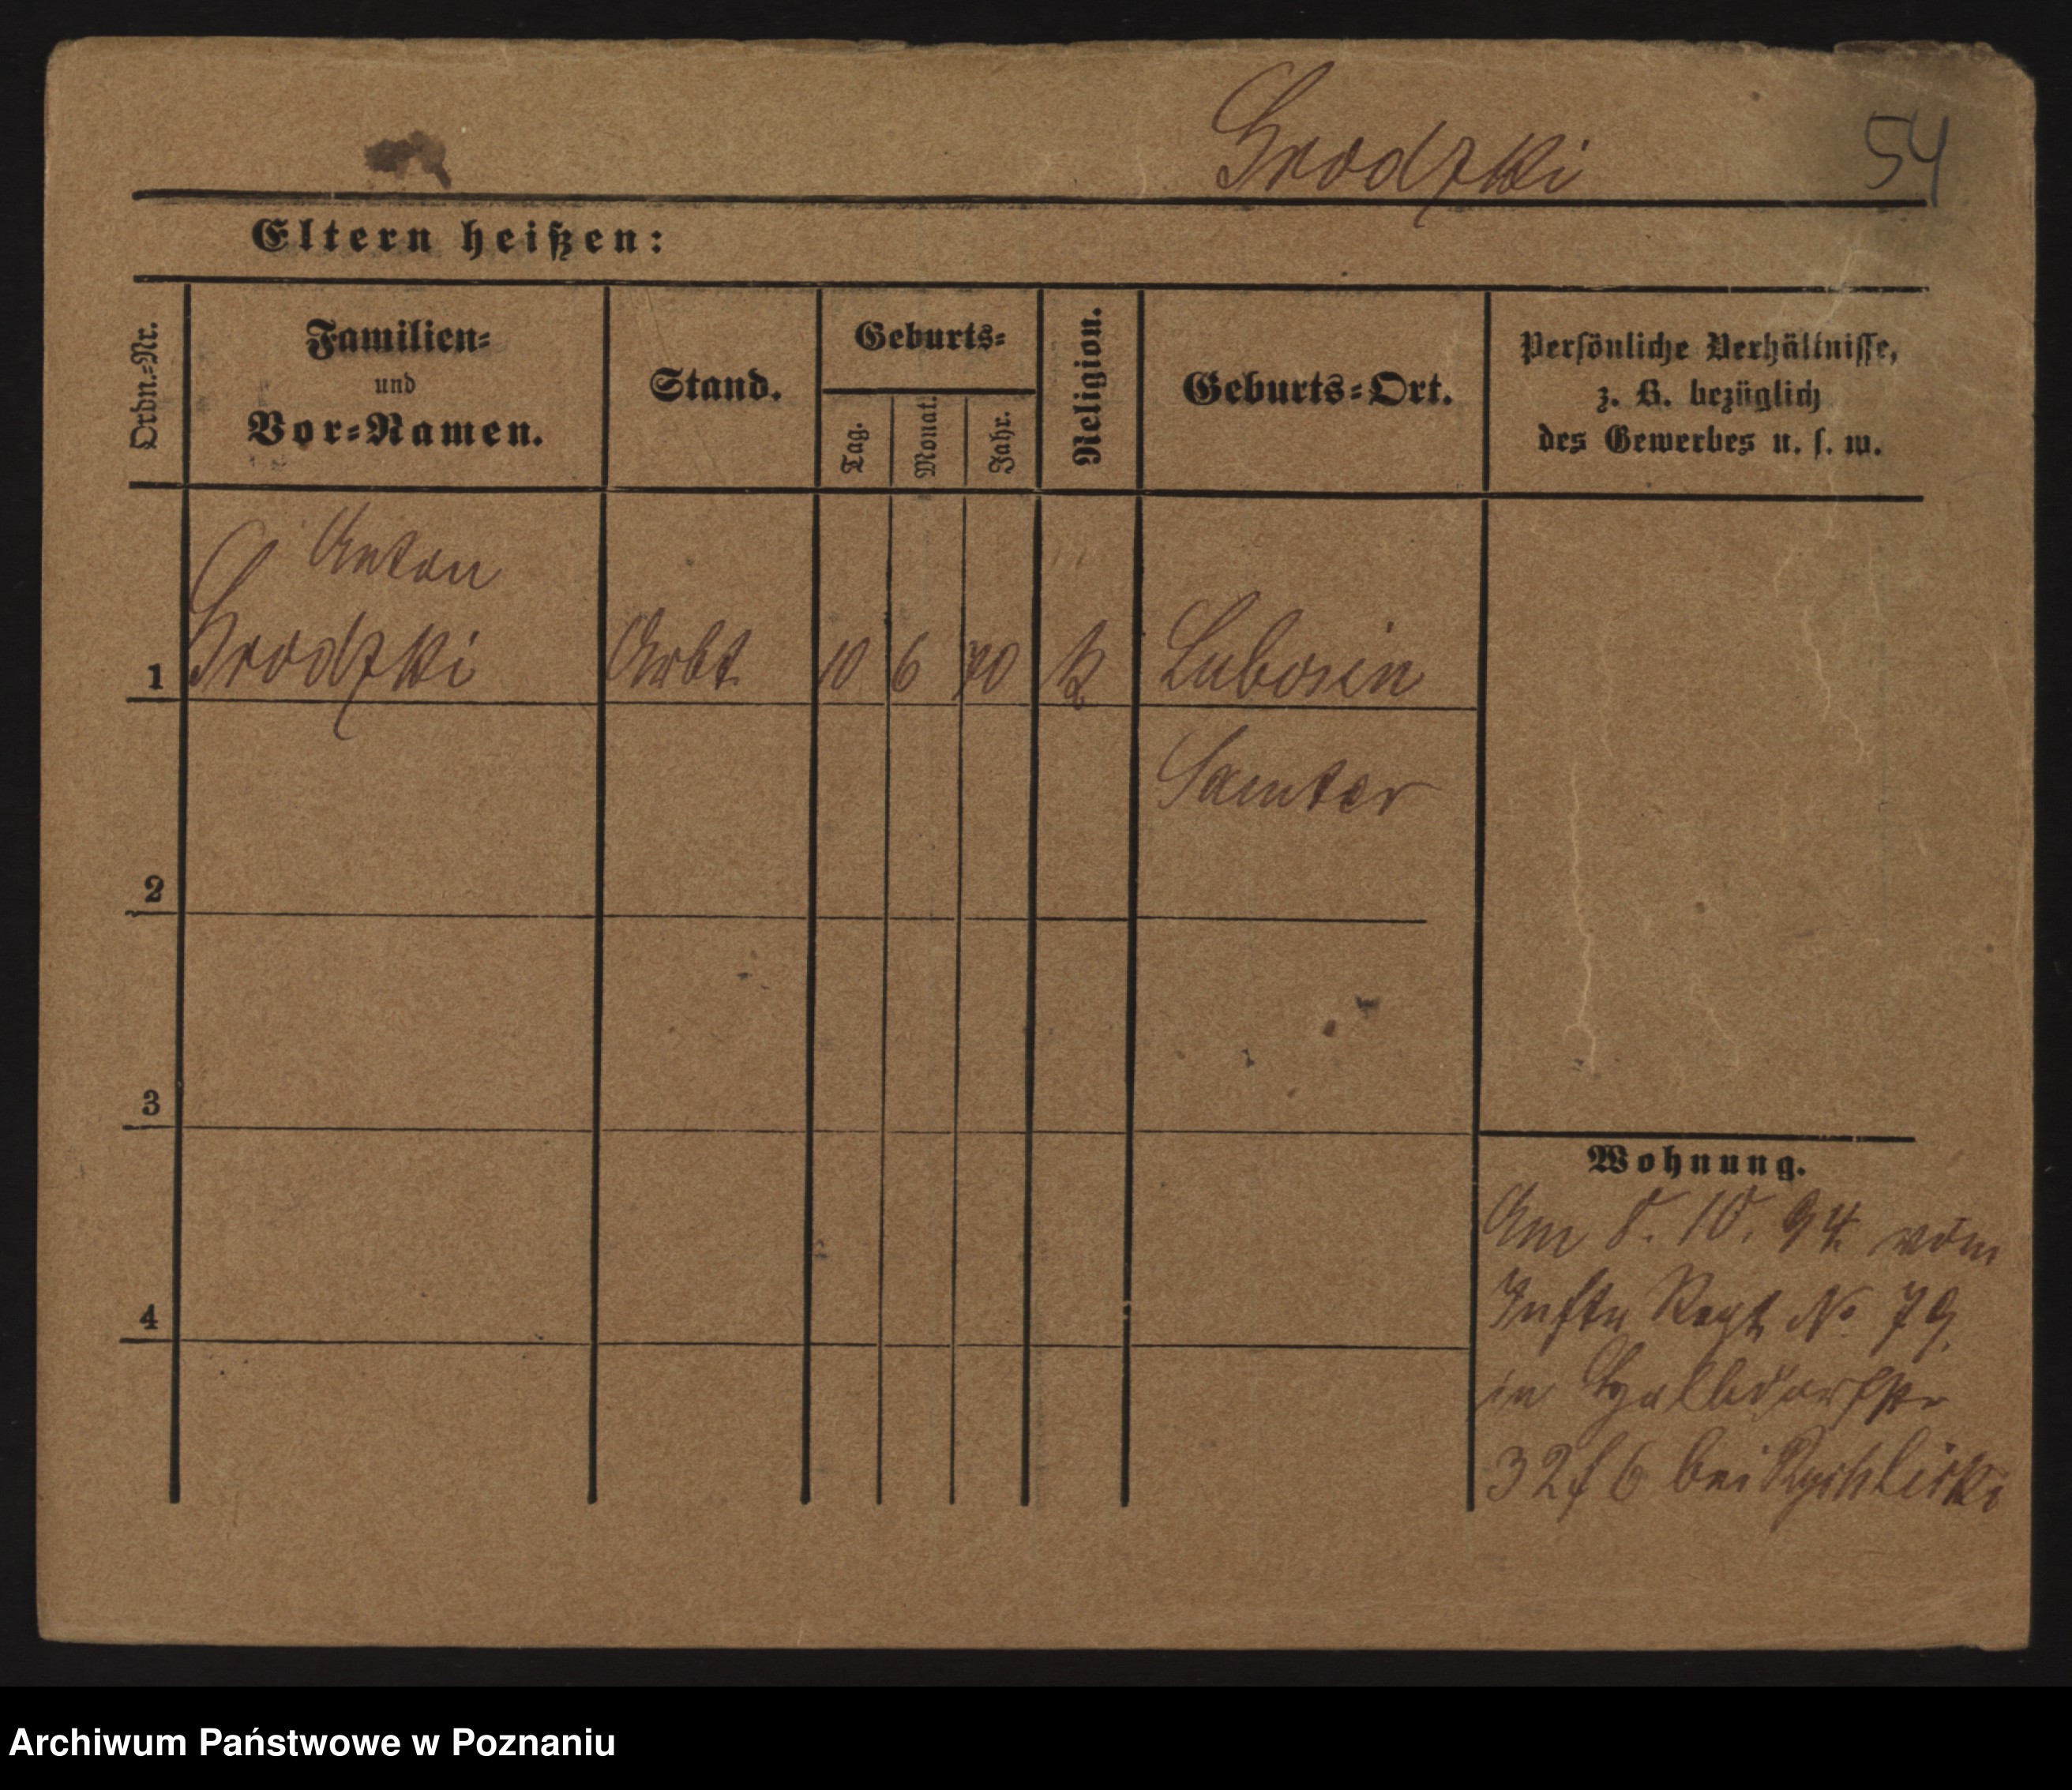 Grodzki
54
Eltern heißen:
Ordn.-Nr.
Familien-
und
Vor-Namen.
Stand.
Geburts-
Tag.
Monat.
Jahr.
Religion.
Geburts-Ort.
Persönliche Verhältnisse,
z. B. bezüglich
des Gewerbes u. s. w.
Anton
1 Grodzki Arbt. 10 6 70 k Lubosin
Samter
2
3
4
Wohnung.
Am 8. 10. 94 vom
Inftr Regt No 79.
in Halbdorfstr
32 f 6 bei
Archiwum Państwowe w Poznaniu